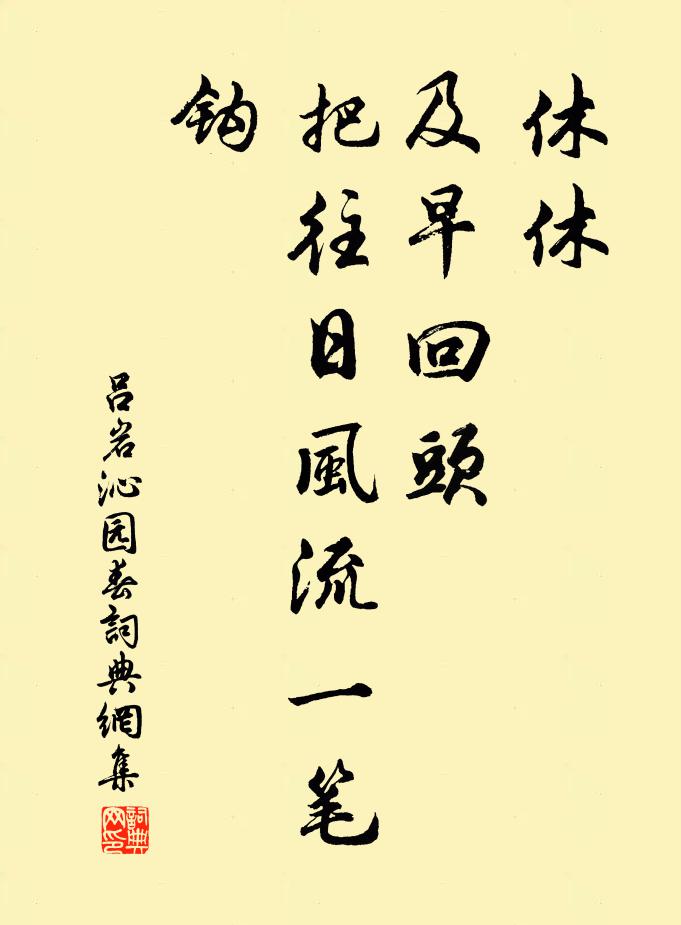 休休
及早回頭
把往日風流一笔
鈎
吕岩沁园春詞典網集
詞典
网印